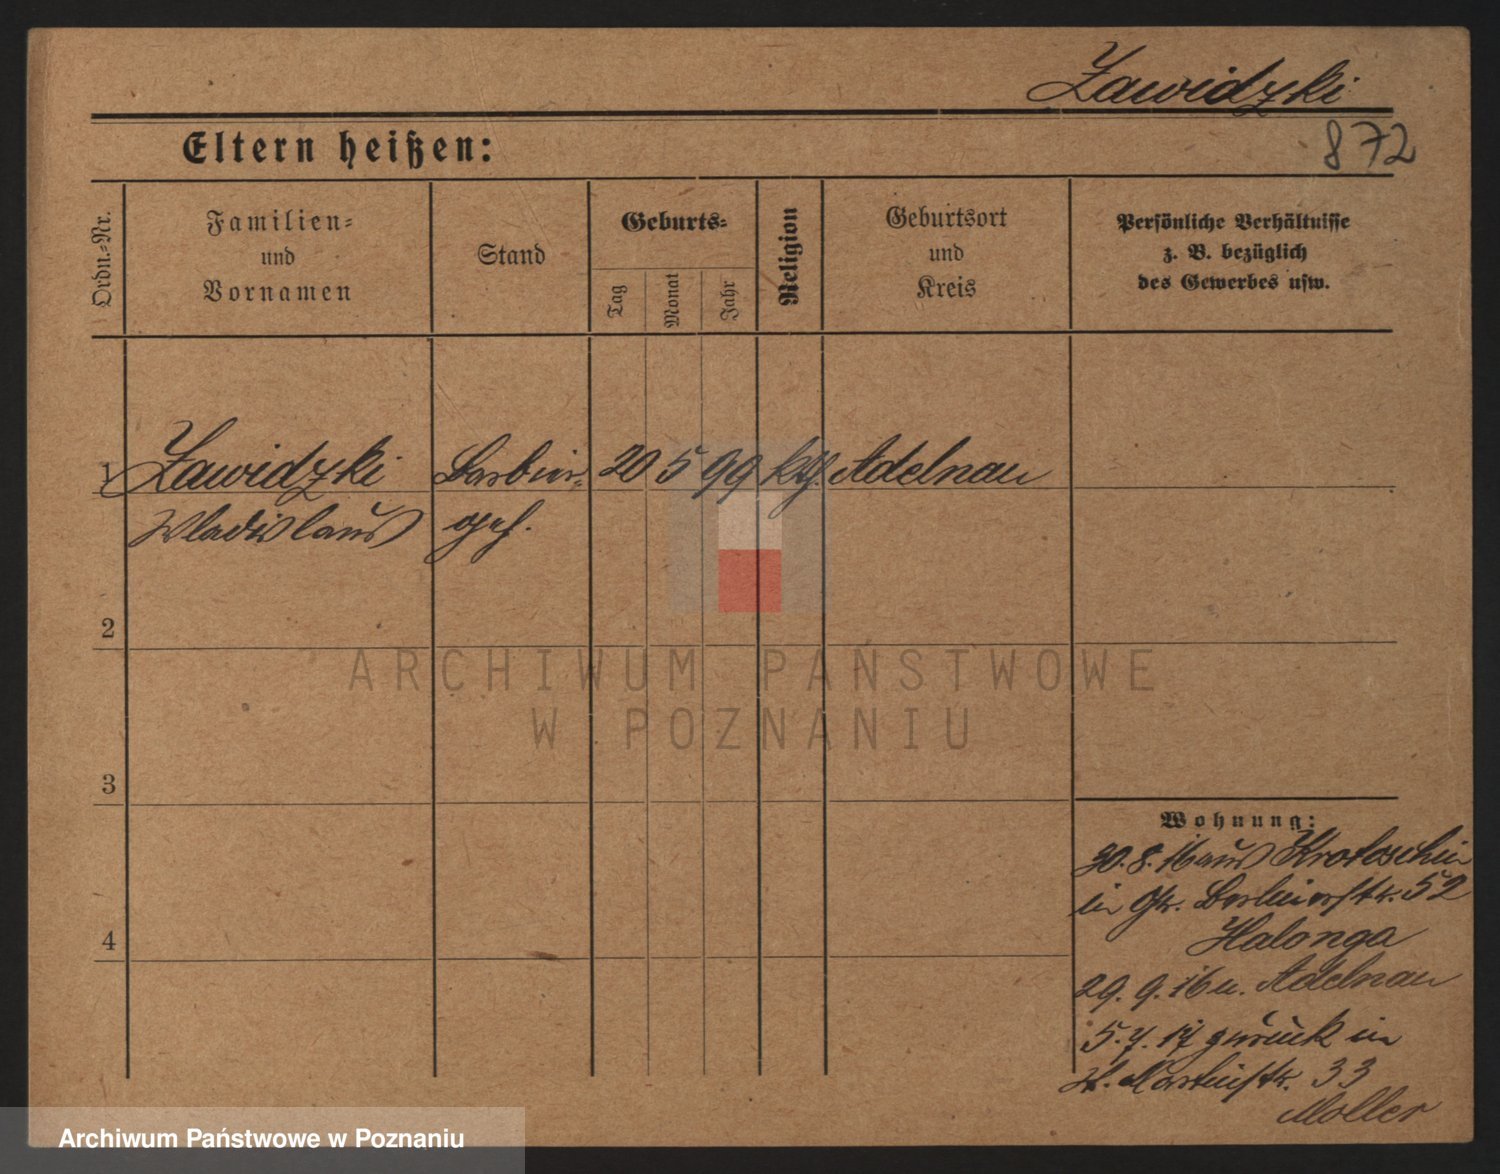 Zawidzki
872
Eltern heißen:
Ordn.-Nr.
Familien-
und
Vornamen
Stand
Geburts-
Tag
Monat
Jahr
Religion
Geburtsort
und
Kreis
Persönliche Verhältnisse
z. B. bezüglich
des Gewerbes usw.
1 Zawidzki Barbier- 20 5 99 kth. Adelnau
Wladislaus geh.
2
3
4
Wohnung:
30. 8. 16 aus Krotoschin
in Gr. Berlinerstr. 52
Halonga
29. 9. 16 n. Adelnau
5. 7. 17 zurück in
St. Martinstr. 33
Moller
ARCHIWUM PAŃSTWOWE
W POZNANIU
Archiwum Państwowe w Poznaniu